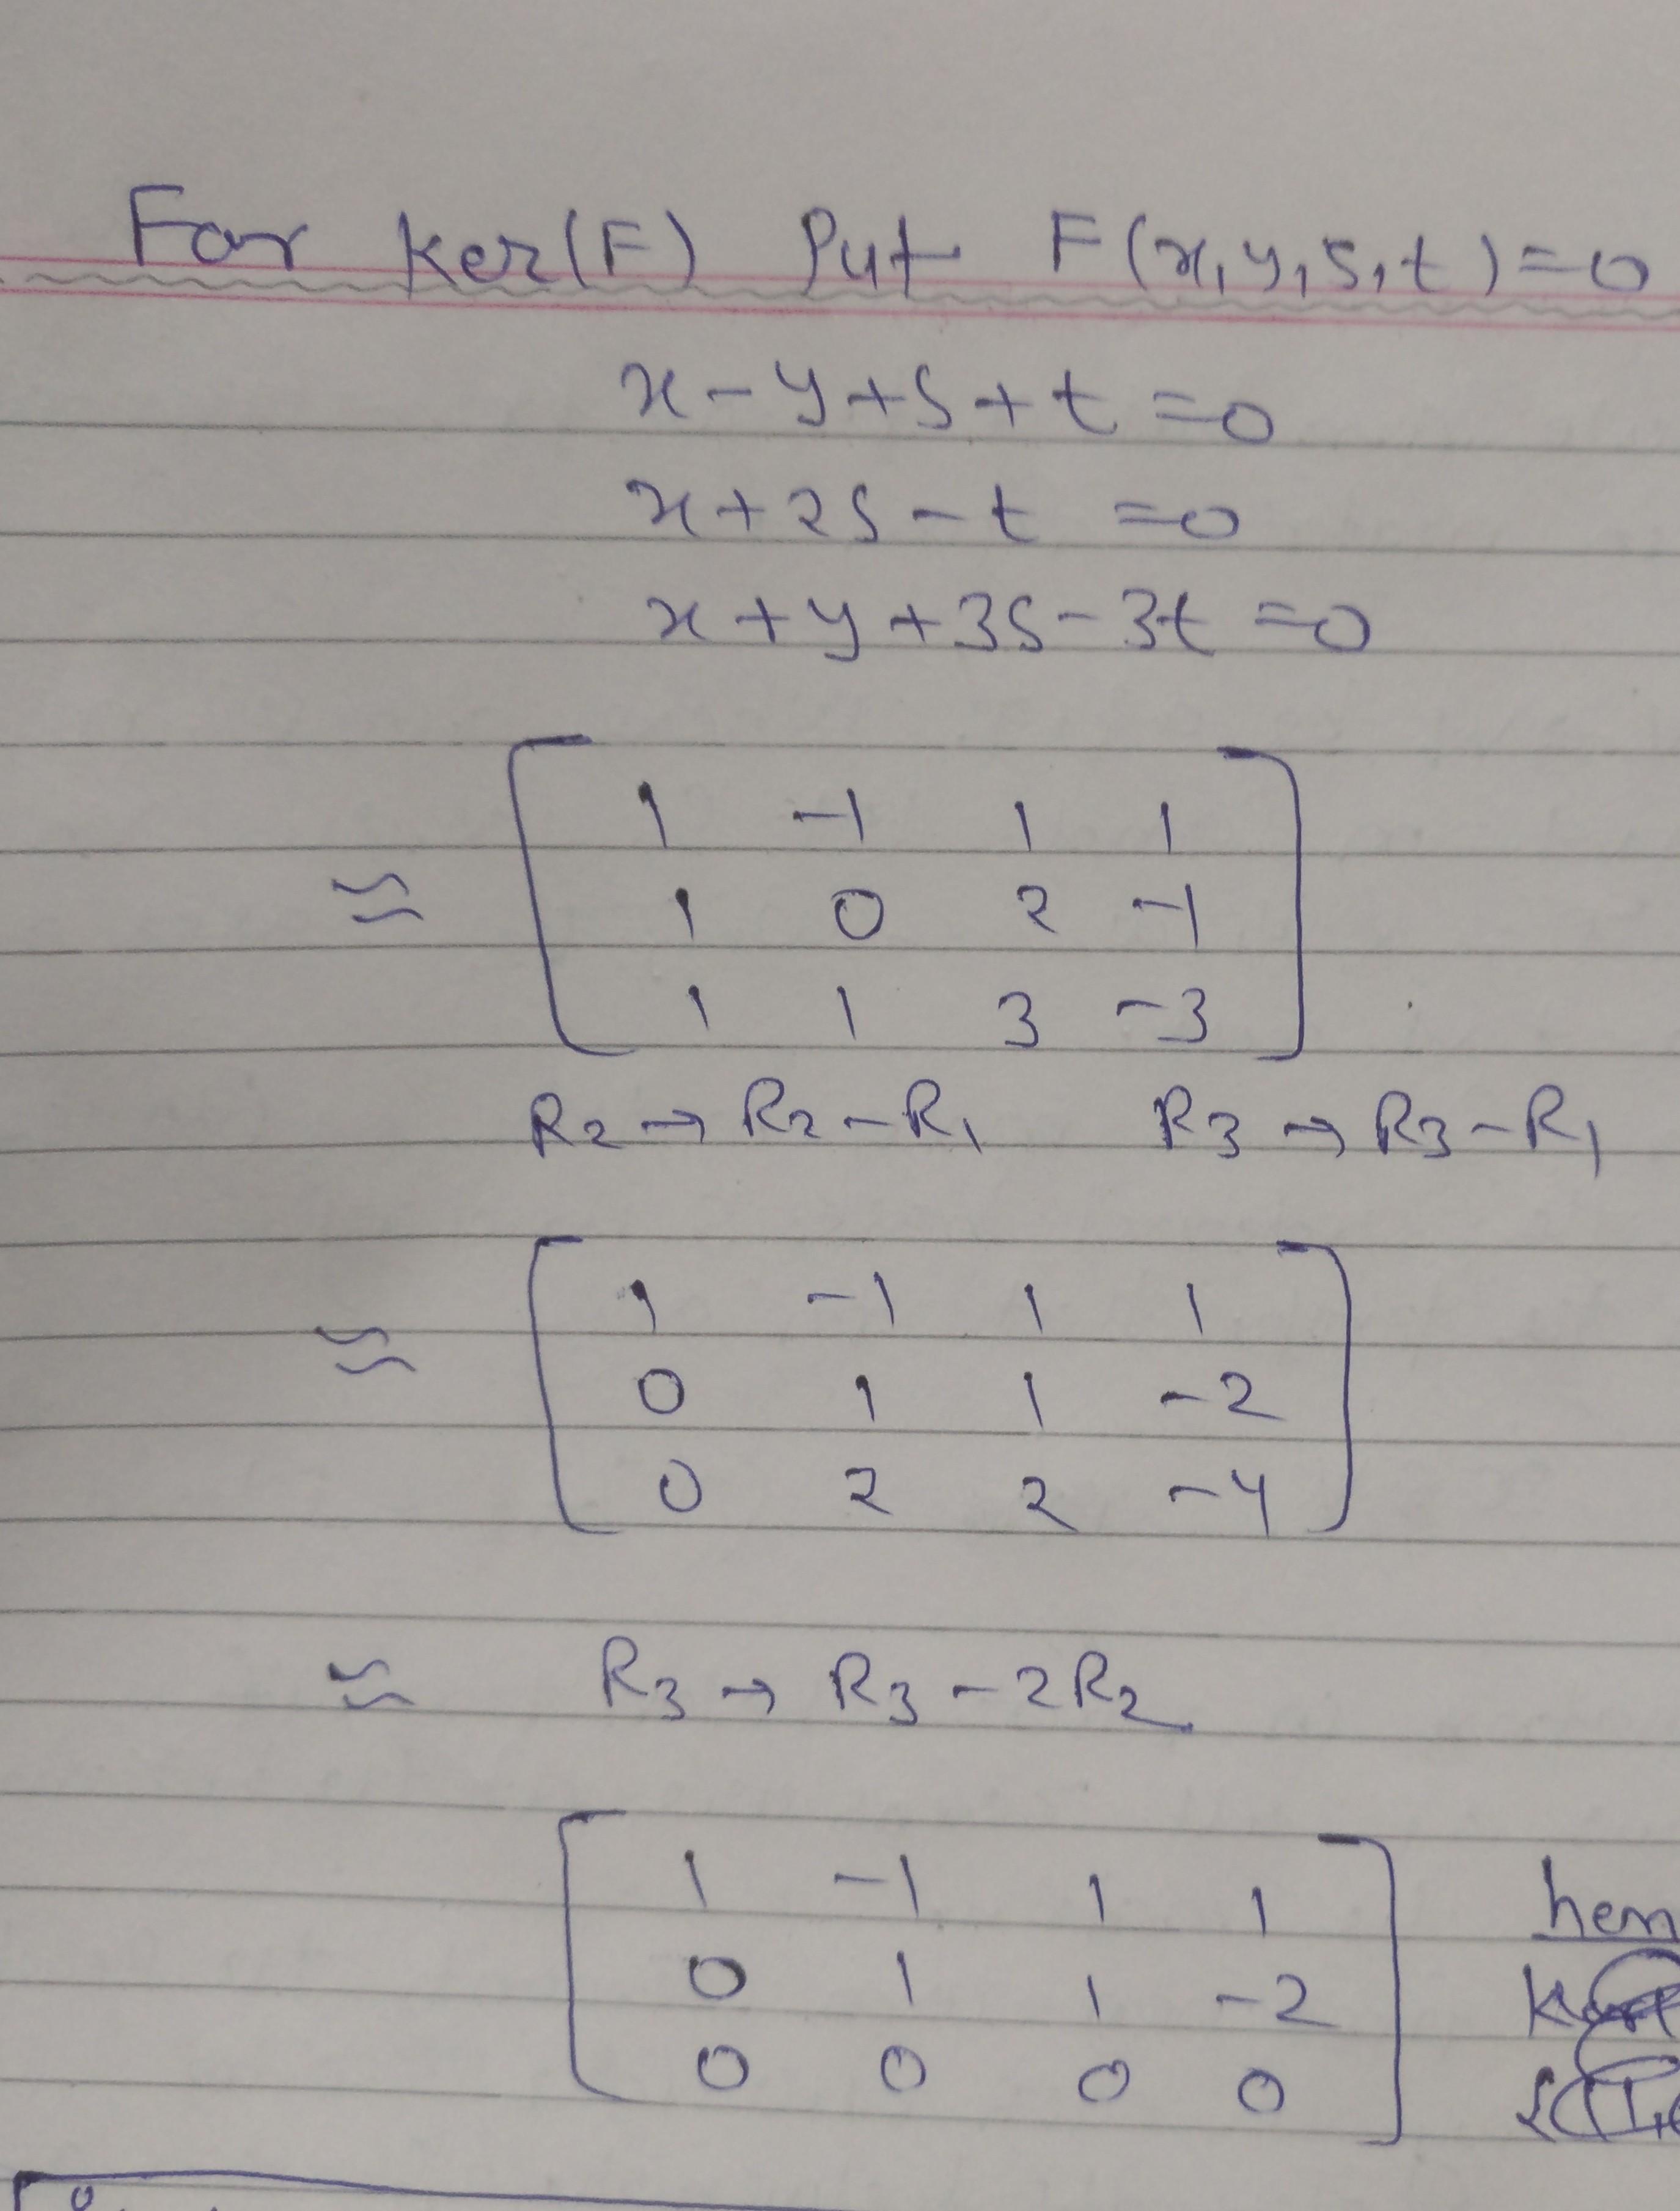 For Ker(F) Put F(x,y,s,t)=0
x-y+s+t=0
x+2s-t=0
x+y+3s-3t=0
≈ [ 1 -1 1 1
1 0 2 -1
1 1 3 -3 ]
R2→R2-R1 R3→R3-R1
≈ [ 1 -1 1 1
0 1 1 -2
0 2 2 -4 ]
≈ R3→R3-2R2
[ 1 -1 1 1
0 1 1 -2
0 0 0 0 ]
hen